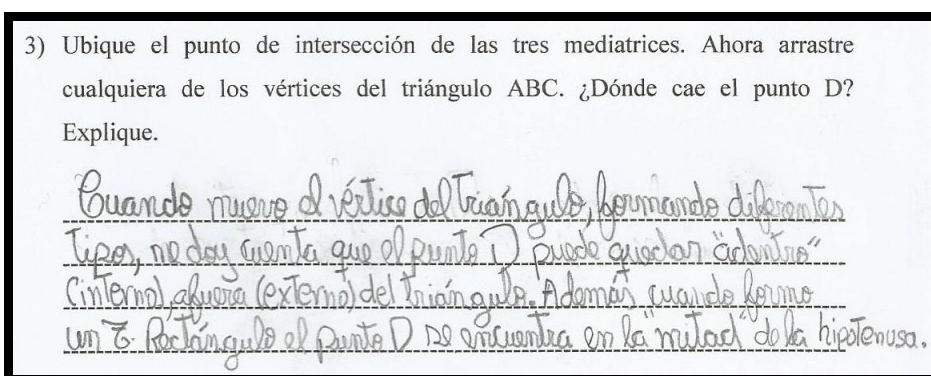 3) Ubique el punto de intersección de las tres mediatrices. Ahora arrastre
cualquiera de los vértices del triángulo ABC. ¿Dónde cae el punto D?
Explique.
Cuando muevo el vértice del Triángulo, formando diferentes
Tipos, me doy cuenta que el punto D puede quedar "adentro"
(interno), afuera (externo) del triángulo. Además cuando formo
un Rectángulo el punto D se encuentra en la "mitad" de la hipotenusa.